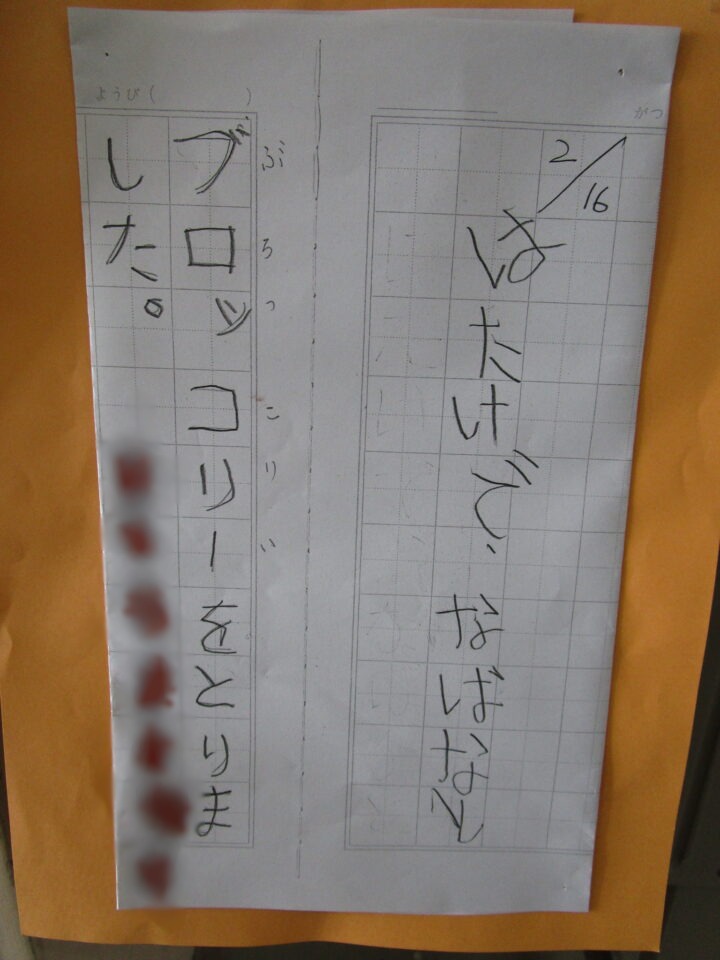 がつ
2/16
だけど、なばなと
ようび(　　)
ぶろっこりい
ブロッコリーをとりま
した。